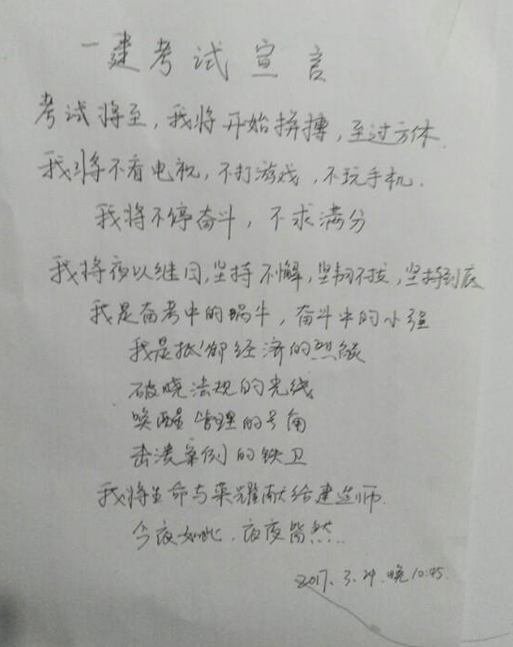 一建考试宣言
考试将至，我将开始拼搏，至过方休.
我将不看电视，不打游戏，不玩手机.
我将不停奋斗，不求满分
我将夜以继日，坚持不懈，坚韧不拔，坚持到底
我是备考中的蜗牛，奋斗中的小强
我是抵御经济的烈焰
破晓法规的光线
唤醒管理的号角
击溃案例的铁卫
我将生命与荣耀献给建造师.
今夜如此.夜夜皆然...
2017.3.29.晚10:45.